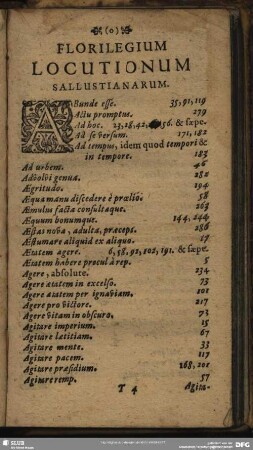 (o)
FLORILEGIUM
LOCUTIONUM
SALLUSTIANARUM.
ABunde esse. 35, 91, 119
Actu promptus. 279
Ad hoc. 23, 28, 42, 56. & sæpe.
Ad se versum. 171, 182
Ad tempus, idem quod tempori &
in tempore. 183
Ad urbem. 46
Advolvi genua. 282
Ægritudo. 194
Æqua manu discedere è prælio. 58
Æmulus facta consultaque. 263
Æquum bonumque. 144, 244
Æstas nova, adulta, præceps. 286
Æstumare aliquid ex aliquo. 17
Ætatem agere. 6, 58, 92, 102, 191. & sæpe.
Ætatem habere procul à rep. 5
Agere, absolute. 234
Agere ætatem in excelso. 73
Agere ætatem per ignaviam. 102
Agere pro victore. 217
Agere vitam in obscuro. 73
Agitare imperium. 15
Agitare lætitiam. 67
Agitare mente. 33
Agitare pacem. 117
Agitare præsidium. 168, 201
Agitare remp. 57
T 4 Agita-
SLUB